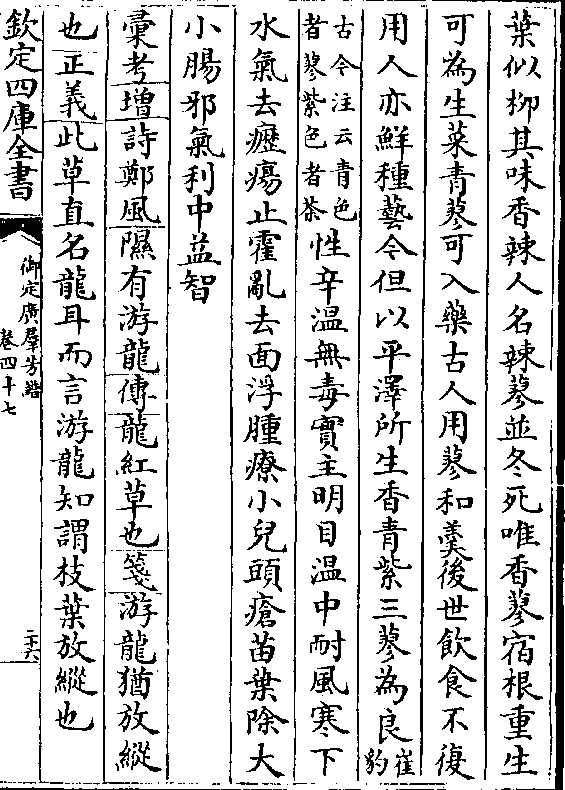 葉似柳其味香辣人名辣蓼並冬死唯香蓼宿根重生
可為生菜青蓼可入藥古人用蓼和羹後世飲食不復
用人亦鮮種藝今但以平澤所生香青紫三蓼為良崔豹
古今注云青色
者蓼紫色者荼
性辛温無毒實主明目温中耐風寒下
水氣去癧瘍止霍亂去面浮腫療小兒頭瘡苗葉除大
小腸邪氣利中益智
彚考增詩鄭風隰有游龍傳龍紅草也箋游龍猶放縱
也正義此草直名龍耳而言游龍知謂枝葉放縱也
欽定四庫全書
御定廣羣芳譜
卷四十七
二十六